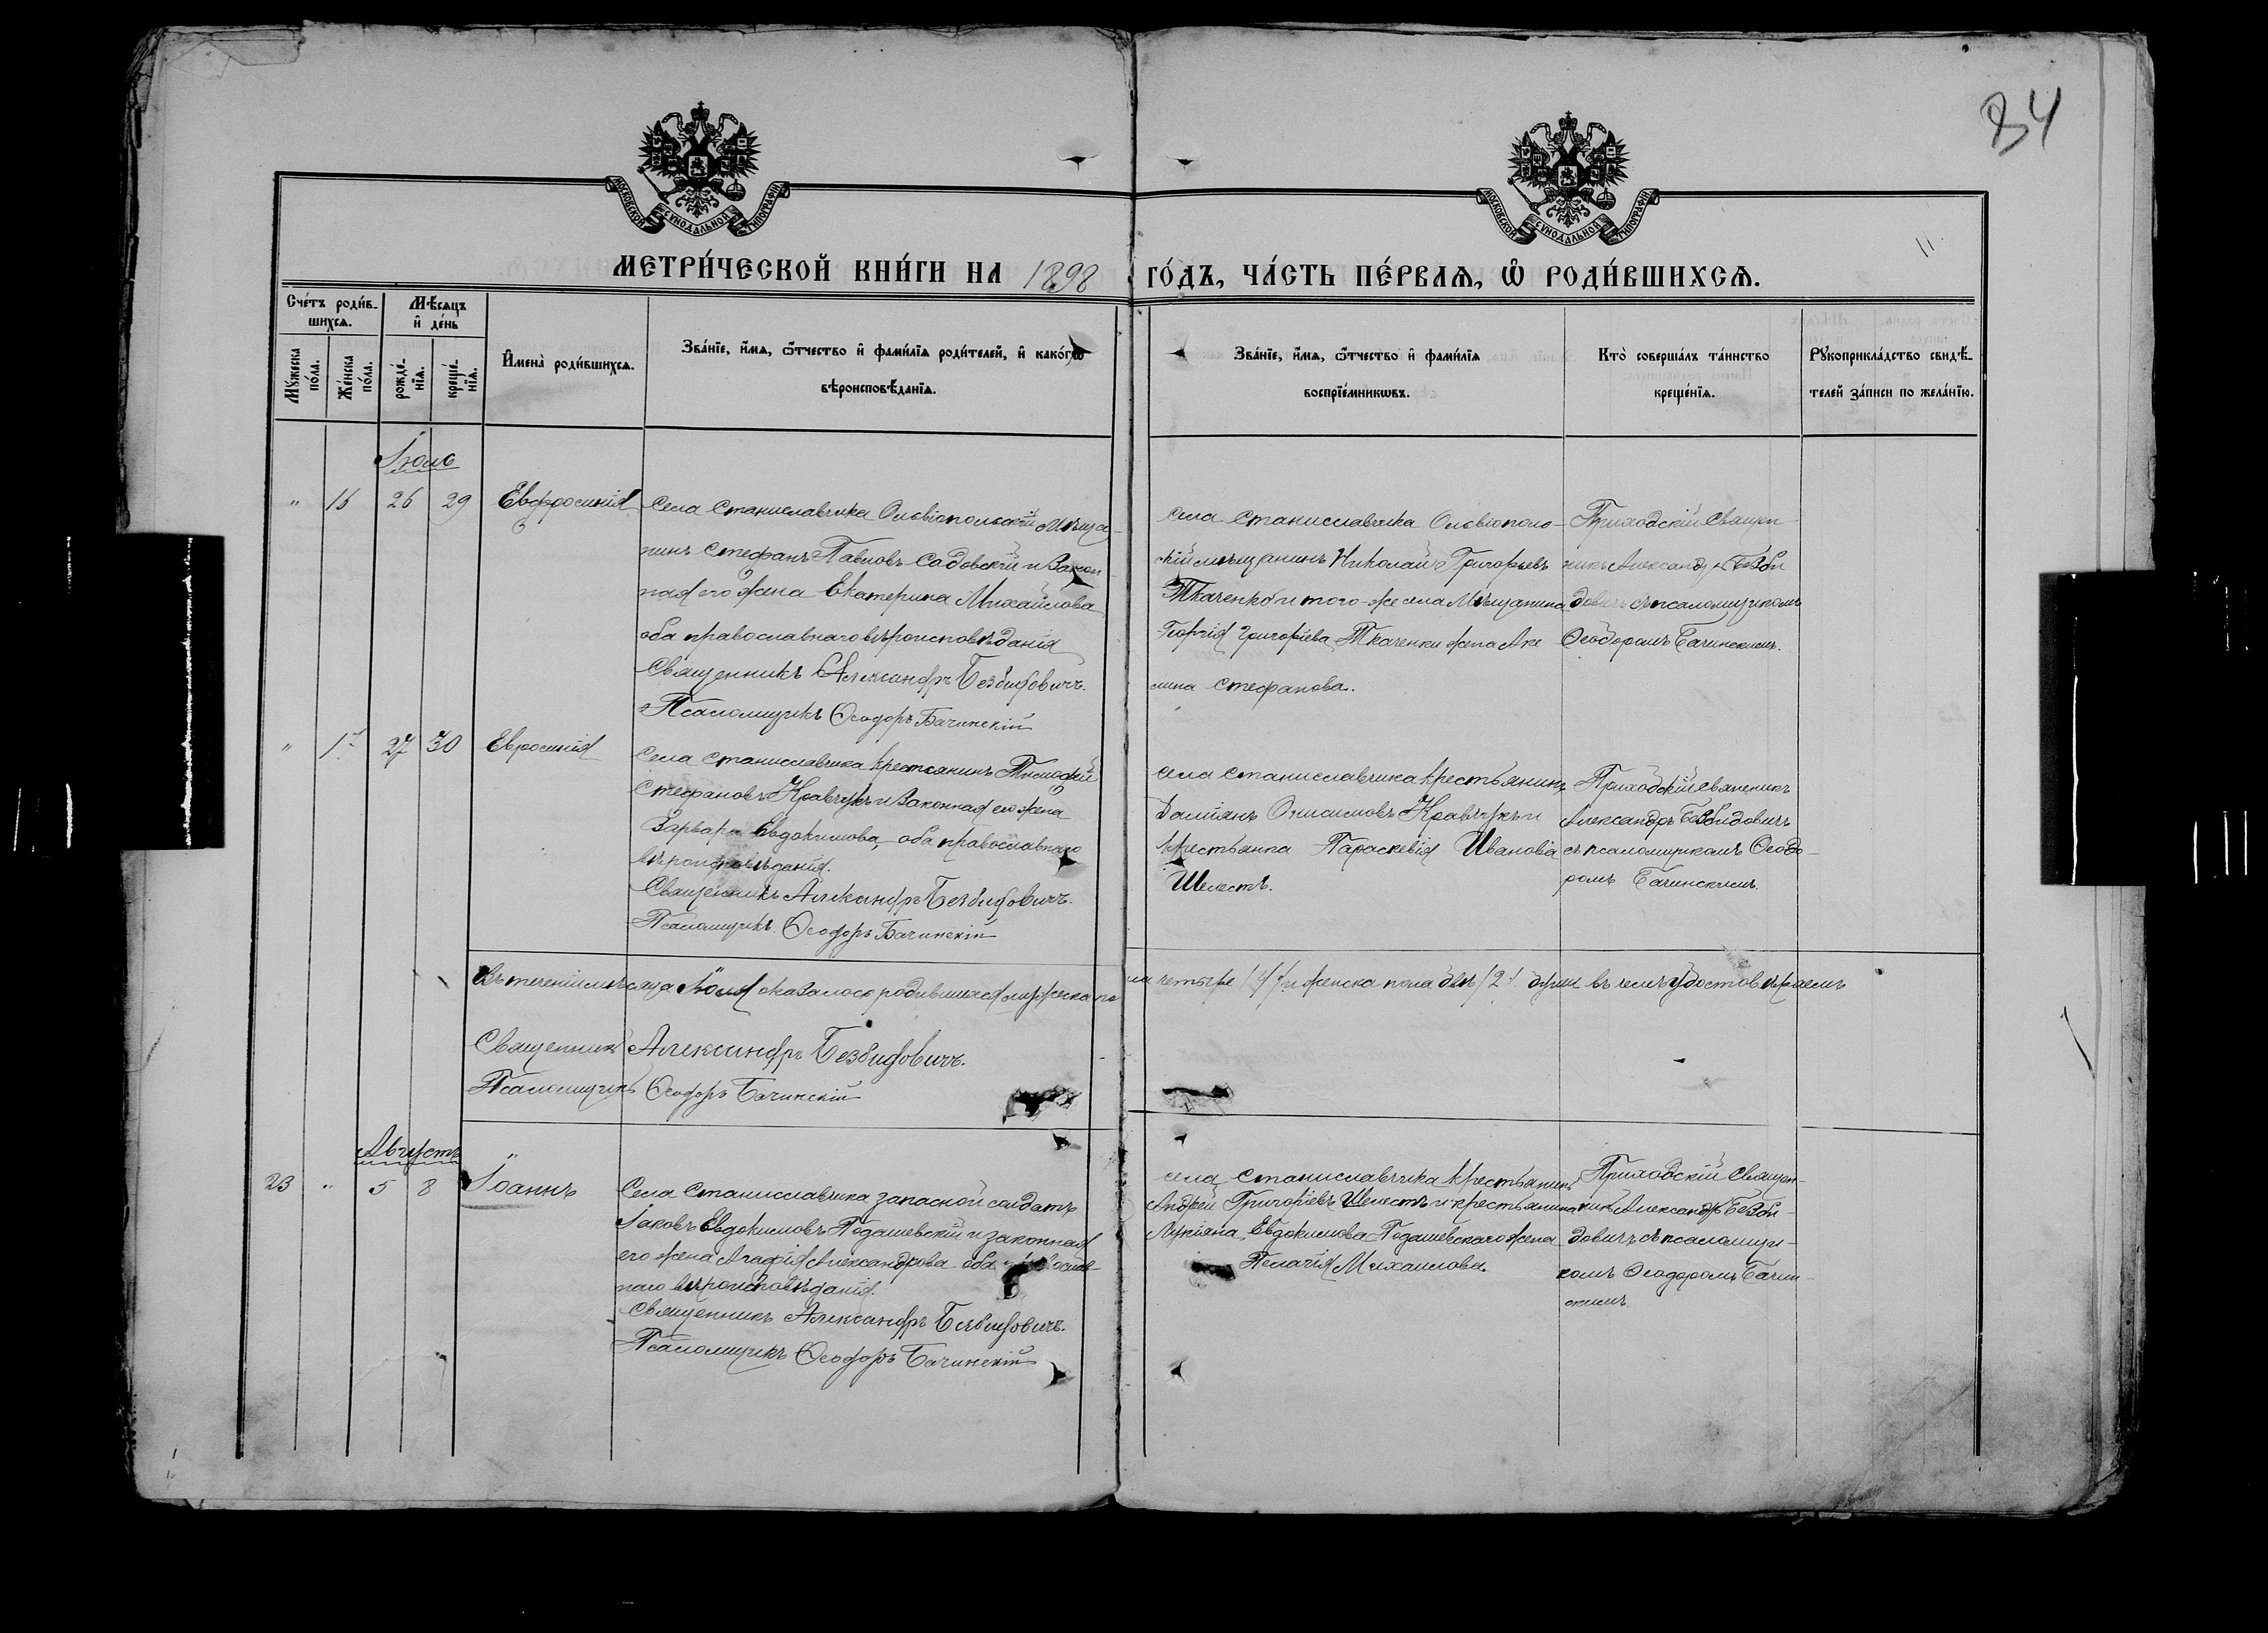 84
МОСКОВСКОЙ СѴНОДАЛЬНОЙ ТИПОГРАФІИ
МОСКОВСКОЙ СѴНОДАЛЬНОЙ ТИПОГРАФІИ
11
МЕТРИ́ЧЕСКОЙ КНИ́ГИ НА 1898 ГО́ДЪ, ЧА́СТЬ ПЕ́РВАѦ, Ѡ҆ РОДИ́ВШИХСѦ.
Сче́тъ роди́в-
шихсѧ.
Мѣ́сѧцъ
и҆ де́нь
Мꙋ́жеска
по́ла.
Же́нска
по́ла.
рожде́-
нїѧ.
креще́-
нїѧ.
И҆мена̀ роди́вшихсѧ.
Зва́нїе, и҆́мѧ, ѻ҆́тчество и҆ фами́лїѧ роди́телей, и҆ како́гѡ
вѣроисповѣ́данїѧ.
Зва́нїе, и҆́мѧ, ѻ҆́тчество и҆ фами́лїѧ
воспрїе́мникѡвъ.
Кто̀ соверша́лъ та́инство
креще́нїѧ.
Рꙋкоприкла́дство свидѣ́-
телей за́писи по жела́нїю.
Іюль
" 16 26 29 Евфросинія
Села Станиславчика Ольвіопольскій мѣща-
нинъ Стефанъ Павловъ Садовскій и закон
ная его жена Екатерина Михайлова
оба православнаго вѣроисповѣданія
Священникъ Александръ Безбидовичъ.
Псаломщикъ Ѳеодоръ Бачинскій
села Станиславчика Ольвіополь-
скій мѣщанинъ Николай Григорьевъ
Ткаченко и того-же села мѣщанина
Георгія Григоріева Ткаченки жена Аке
лина Стефанова.
Приходскій Священ-
никъ Александръ Безби
довичъ съ псаломщикомъ
Ѳеодоромъ Бачинскимъ.
" 17 27 30 Евросинія
Села Станиславчика крестьянинъ Тимофей
Стефановъ Кравчукъ и законная его жена
Варвара Евдокимова, оба православнаго
вѣроисповѣданія.
Священникъ Александръ Безбидовичъ.
Псаломщикъ Ѳеодоръ Бачинскій
села Станиславчика крестьянинъ
Даміянъ Онисимовъ Кравчукъ и
крестьянка Параскевія Иванова
Шелестъ.
Приходскій священикъ
Александръ Безбидовичъ
съ псаломщикомъ Ѳеодо-
ромъ Бачинскимъ.
Въ теченіи мѣсяца Іюля оказалось родившихся мужеска по
ла четыре /4/ и женска пола двѣ /2/ души въ чемъ удостовѣряемъ
Священникъ Александръ Безбидовичъ.
Псаломщикъ Ѳеодоръ Бачинскій
Августъ
23 " 5 8 Іоаннъ
Села Станиславчика запасной солдатъ
Іаковъ Евдокимовъ Подашевскій и законная
его жена Агафія Александрова оба православ-
наго вѣроисповѣданія.
Священникъ Александръ Безбидовичъ.
Псаломщикъ Ѳеодоръ Бачинскій
села Станиславчика крестьянинъ
Андрей Григоріевъ Шелестъ и крестьянина
Лукіяна Евдокимова Подашевскаго жена
Пелагія Михаилова
Приходскій Священ-
никъ Александръ Безби-
довичъ съ псаломщи-
комъ Ѳеодоромъ Бачин
скимъ